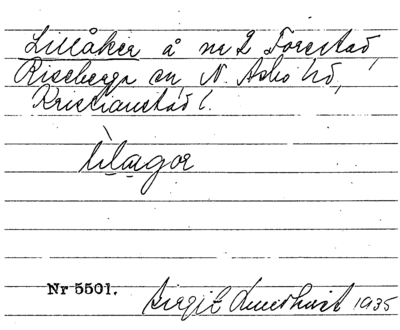 Lillåker å nr 2 Forestad,
Riseberga sn N. Asbo hd,
Kristianstad l.
lilagor
Nr 5501.
Birgit 1935